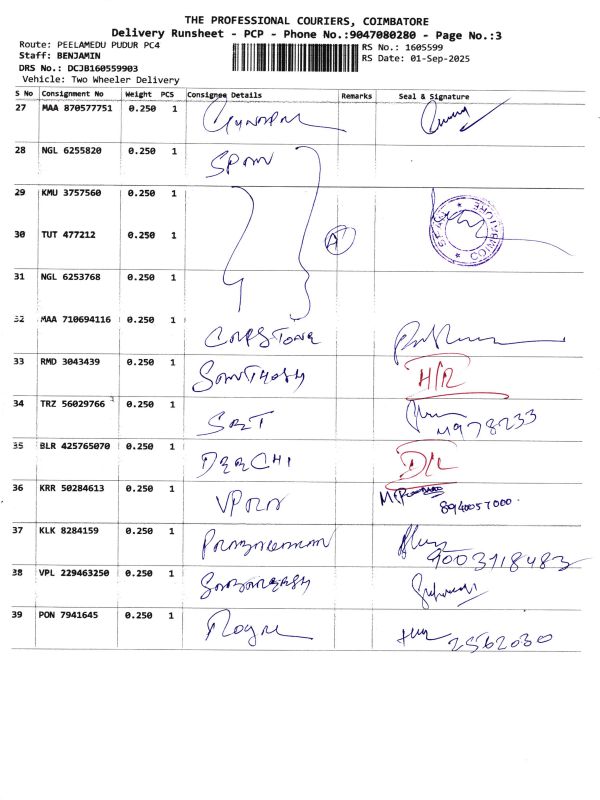 THE PROFESSIONAL COURIERS, COIMBATORE
Delivery Runsheet - PCP - Phone No.:9047080280 - Page No.:3
Route: PEELAMEDU PUDUR PC4 RS No.: 1605599
Staff: BENJAMIN RS Date: 01-Sep-2025
DRS No.: DCJB160559903
Vehicle: Two Wheeler Delivery
S No Consignment No Weight PCS Consignee Details Remarks Seal & Signature
27 MAA 870577751 0.250 1
28 NGL 6255820 0.250 1
29 KMU 3757560 0.250 1
30 TUT 477212 0.250 1 A
31 NGL 6253768 0.250 1
32 MAA 710694116 0.250 1
33 RMD 3043439 0.250 1 Santhosh
34 TRZ 56029766 0.250 1 M978233
35 BLR 425765070 0.250 1 D/L
36 KRR 50284613 0.250 1 8940057000.
37 KLK 8284159 0.250 1 9003718483
38 VPL 229463250 0.250 1
39 PON 7941645 0.250 1 2562030